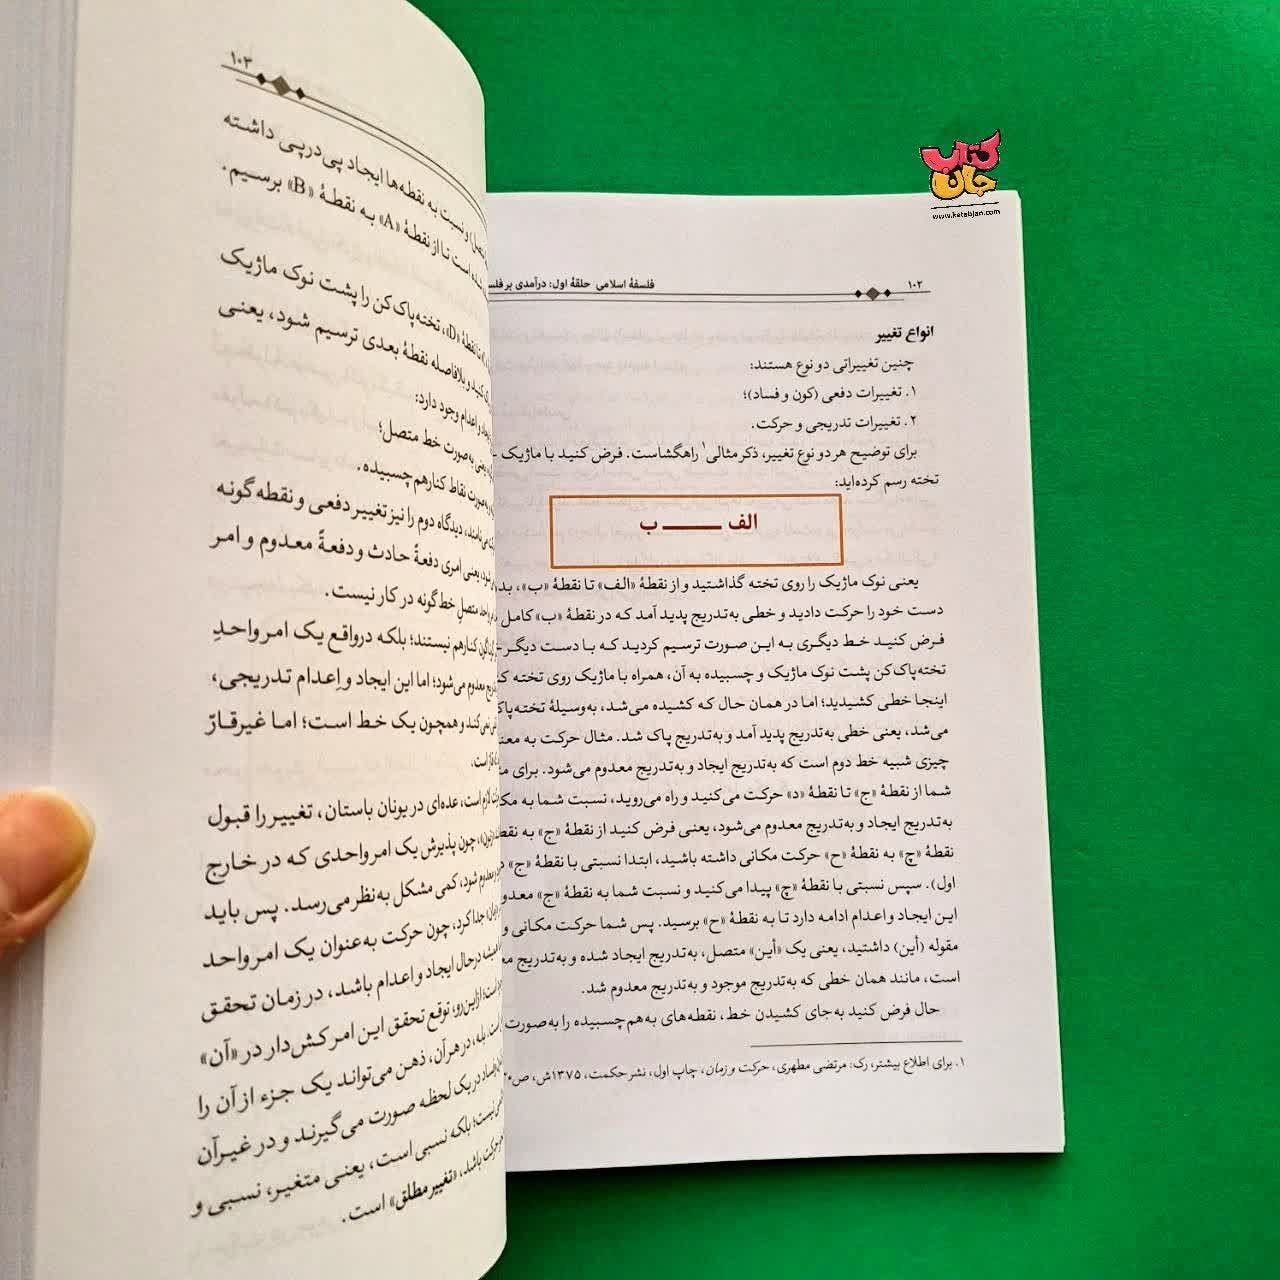 کتاب جان
www.ketabjan.com
۱۰۲
فلسفهٔ اسلامی حلقهٔ اول: درآمدی بر
انواع تغییر
چنین تغییراتی دو نوع هستند:
۱. تغییرات دفعی (کون و فساد)؛
۲. تغییرات تدریجی و حرکت.
برای توضیح هر دو نوع تغییر، ذکر مثالی۱ راهگشاست. فرض کنید با ماژیک
تخته رسم کرده‌اید:
الف ــــــــ ب
یعنی نوک ماژیک را روی تخته گذاشتید و از نقطهٔ «الف» تا نقطهٔ «ب»،
دست خود را حرکت دادید و خطی به‌تدریج پدید آمد که در نقطهٔ «ب» کامل
فرض کنید خط دیگری به این صورت ترسیم کردید که با دست دیگر
تخته‌پاک‌کن پشت نوک ماژیک و چسبیده به آن، همراه با ماژیک روی تخته
اینجا خطی کشیدید؛ اما در همان حال که کشیده می‌شد، به‌وسیلهٔ
می‌شد، یعنی خطی به‌تدریج پدید آمد و به‌تدریج پاک شد. مثال حرکت به
چیزی شبیه خط دوم است که به‌تدریج ایجاد و به‌تدریج معدوم می‌شود. برای
شما از نقطهٔ «ج» تا نقطهٔ «د» حرکت می‌کنید و راه می‌روید، نسبت شما به
به‌تدریج ایجاد و به‌تدریج معدوم می‌شود، یعنی فرض کنید از نقطهٔ «ج» به
نقطهٔ «چ» به نقطهٔ «ح» حرکت مکانی داشته باشید، ابتدا نسبتی با نقطهٔ «ج»
اول). سپس نسبتی با نقطهٔ «چ» پیدا می‌کنید و نسبت شما به نقطهٔ «ج»
این ایجاد و اعدام ادامه دارد تا به نقطهٔ «ح» برسید. پس شما حرکت مکانی و
مقوله (أین) داشتید، یعنی یک «أین» متصل، به‌تدریج ایجاد شده و به‌تدریج
است، مانند همان خطی که به‌تدریج موجود و به‌تدریج معدوم شد.
حال فرض کنید به‌جای کشیدن خط، نقطه‌های به‌هم‌چسبیده را به‌صورت
۱. برای اطلاع بیشتر، رک: مرتضی مطهری، حرکت و زمان، چاپ اول، نشر حکمت، ۱۳۷۵ش،
۱۰۳
و نسبت به نقطه‌ها ایجاد پی‌درپی داشته
است تا از نقطهٔ «A» به نقطهٔ «B» برسیم.
نقطهٔ «D»، تخته‌پاک‌کن را پشت نوک ماژیک
کنید و بلافاصله نقطهٔ بعدی ترسیم شود، یعنی
و اعدام وجود دارد:
به صورت خط متصل؛
به صورت نقاط کنار هم چسبیده.
می‌نامند، دیدگاه دوم را نیز تغییر دفعی و نقطه‌گونه
یعنی امری دفعةً حادث و دفعةً معدوم و امر
واحد متصلِ خط‌گونه در کار نیست.
کنار هم نیستند؛ بلکه درواقع یک امر واحدِ
معدوم می‌شود؛ اما این ایجاد و اِعدام تدریجی،
نمی‌کند و همچون یک خط است؛ اما غیرقارّ
است.
لازم است، عده‌ای در یونان باستان، تغییر را قبول
چون پذیرش یک امر واحدی که در خارج
معدوم شود، کمی مشکل به‌نظر می‌رسد. پس باید
جدا کرد، چون حرکت به‌عنوان یک امر واحد
همیشه درحال ایجاد و اعدام باشد، در زمان تحقق
ازاین‌رو؛ توقع تحقق این امر کش‌دار در «آن»
بله، در هر آن، ذهن می‌تواند یک جزء از آن را
در یک لحظه صورت می‌گیرند و در غیر آن
نیست؛ بلکه نسبی است، یعنی متغیر، نسبی و
حرکت باشد، «تغییر مطلق» است.